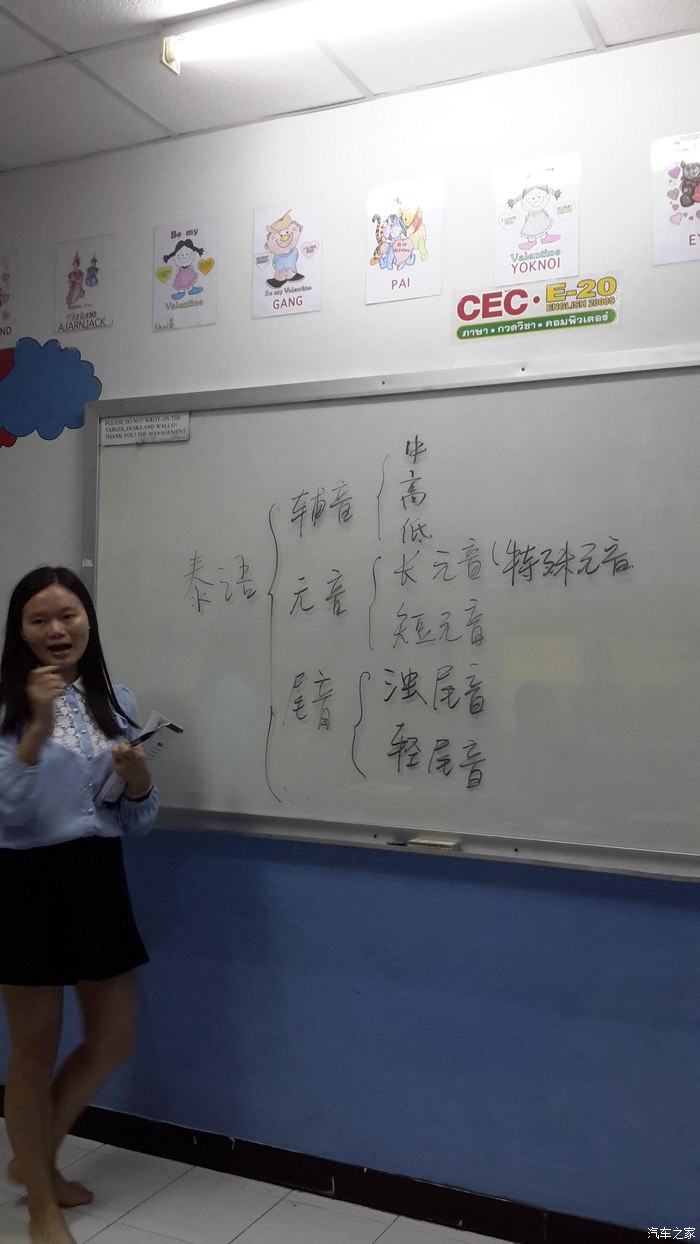 Be my
Valentine
AJARNJACK
Be my Valentine
GANG
PAI
Valentine
YOKNOI
CEC·E-20
ENGLISH 2000S
ภาษา • กวดวิชา • คอมพิวเตอร์
PLEASE DO NOT WRITE ON THE
TABLES, DESKS AND WALLS!!
THANK YOU! THE MANAGEMENT
泰语
辅音
中
高
低
元音
长元音(特殊元音
短元音
尾音
浊尾音
轻尾音
汽车之家